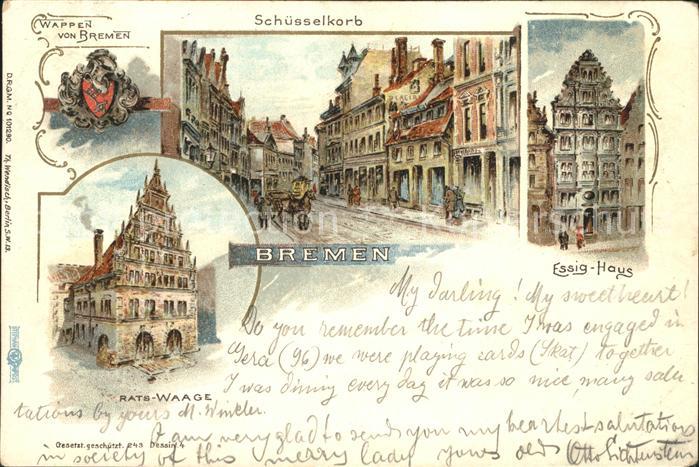 WAPPEN
VON BREMEN
Schüsselkorb
D.R.G.M. No 101290.
Th. Wendisch, Berlin, S.W. 13.
BREMEN
Essig-Haus
RATS-WAAGE
My darling! My sweetheart!
Do you remember the time I was engaged in
Gera (96) we were playing cards (Skat) together
I was dining every day it was so nice, many salu
tations by yours M. Winkler.
Gesetzl. geschützt. 243 Dessin. 4
I am very glad to sends you my heartiest salutation
in society of this merry lady yours old Otto Lichtenstein